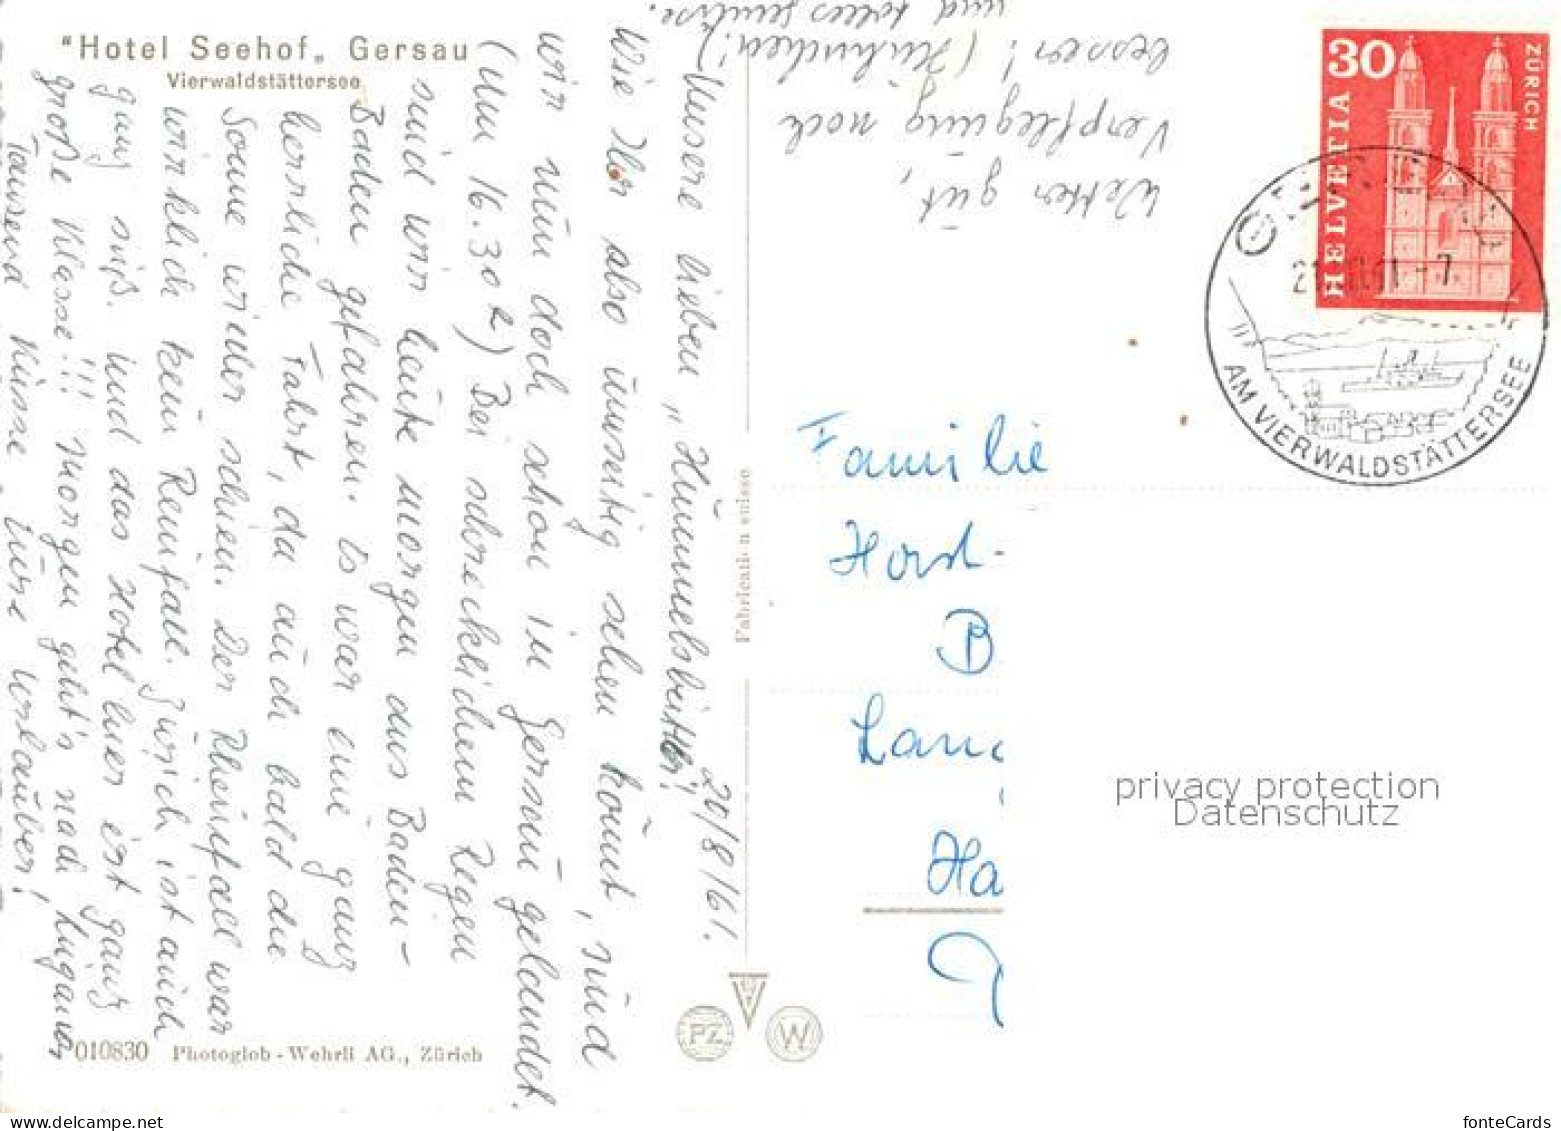 "Hotel Seehof„ Gersau
Vierwaldstättersee
20/8/61.
Unsere lieben „Hümmelsbüttler"!
Wie Ihr also ümseitig sehen könnt, sind
wir nün doch schon in Gersaü gelandet.
(um 16.30 h) Bei schrecklichem Regen
sind wir heüte morgen aus Baden-
Baden gefahren. Es war eine ganz
herrliche Fahrt, da aüch bald die
Sonne wieder schien. Der Rheinfall war
wirklich kein Reinfall. Zürich ist aüch
ganz süß. und das Hotel hier ist ganz
große Klasse!!! Morgen geht's nach Lügano
Taüsend Küsse Eüre Urlaüber!
Wetter güt,
Verpflegüng noch
besser! (Hühnchen!)
und tolles
Fabrication suisse
010830 Photoglob-Wehrli AG., Zürich
PZ
W
30
ZÜRICH
HELVETIA
61 -7
AM VIERWALDSTÄTTERSEE
Familie
Horst-
B
Lang
Ha
privacy protection
Datenschutz
delcampe.net
fonteCards